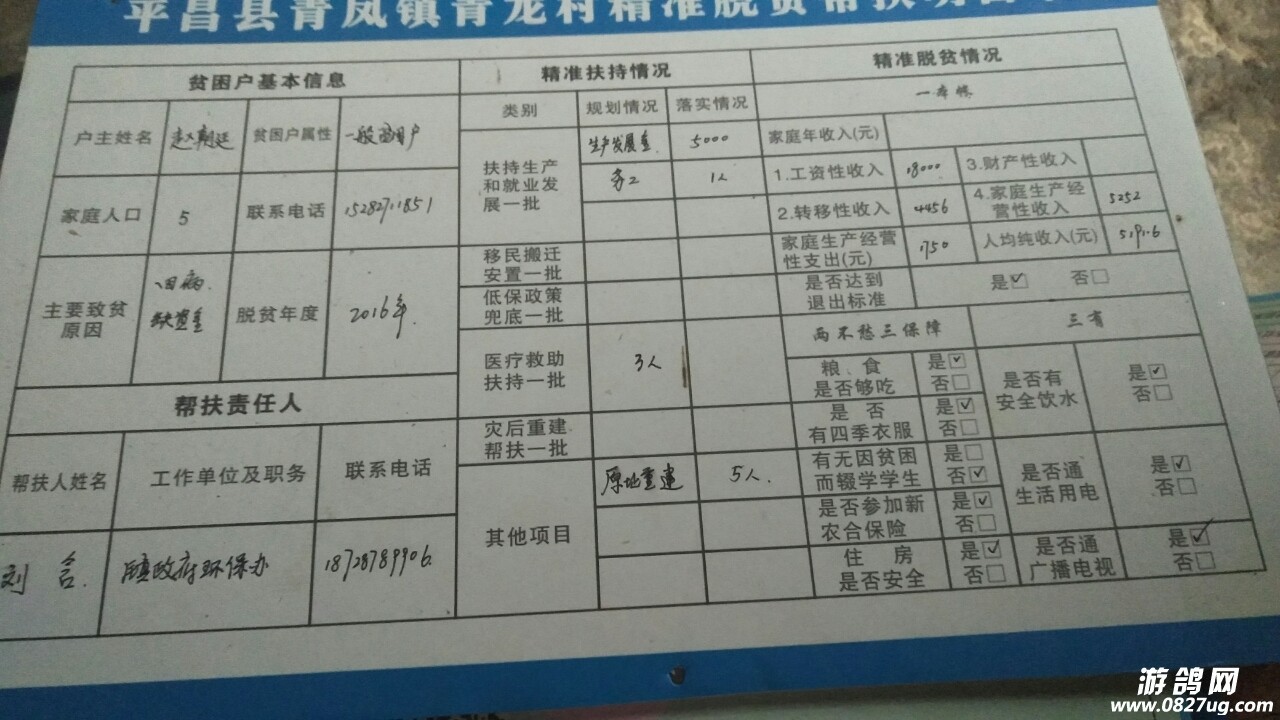 平昌县青凤镇青龙村精准脱贫帮扶明白卡
贫困户基本信息
精准扶持情况
精准脱贫情况
类别
规划情况
落实情况
一本帐
户主姓名
贫困户属性
一般困户
扶持生产
和就业发
展一批
生产发展金
5000
务工
1人
家庭年收入(元)
1.工资性收入
18000
3.财产性收入
家庭人口
5
联系电话
15282711851
2.转移性收入
4456
4.家庭生产经
营性收入
5252
移民搬迁
安置一批
家庭生产经营
性支出(元)
1750
人均纯收入(元)
5191.6
主要致贫
原因
因病
缺资金
脱贫年度
2016年
低保政策
兜底一批
是否达到
退出标准
是☑
否□
两不愁三保障
三有
医疗救助
扶持一批
3人
粮、食
是否够吃
是☑
否□
是否有
安全饮水
是☑
否□
帮扶责任人
灾后重建
帮扶一批
是 否
有四季衣服
是☑
否□
帮扶人姓名
工作单位及职务
联系电话
其他项目
原地重建
5人
有无因贫困
而辍学学生
是□
否☑
是否通
生活用电
是☑
否□
是否参加新
农合保险
是☑
否□
刘
镇政府环保办
18728789906
住 房
是否安全
是☑
否□
是否通
广播电视
是☑
否□
游鸽网
www.0827ug.com